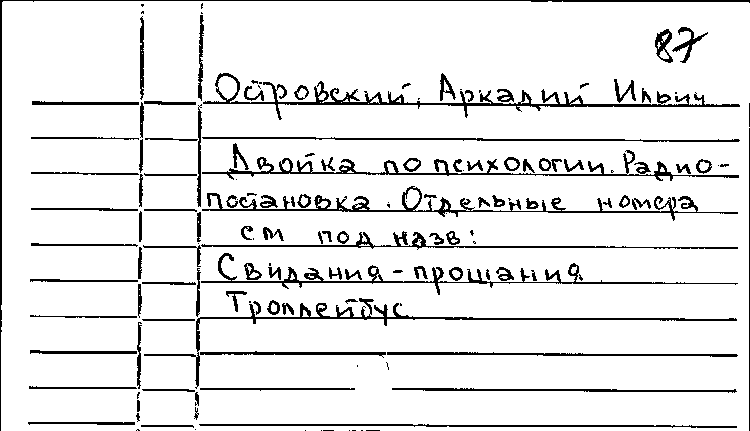 87
Островский, Аркадий Ильич
Двойка по психологии. Радио-
постановка. Отдельные номера
см под назв:
Свидания-прощания
Троллейбус